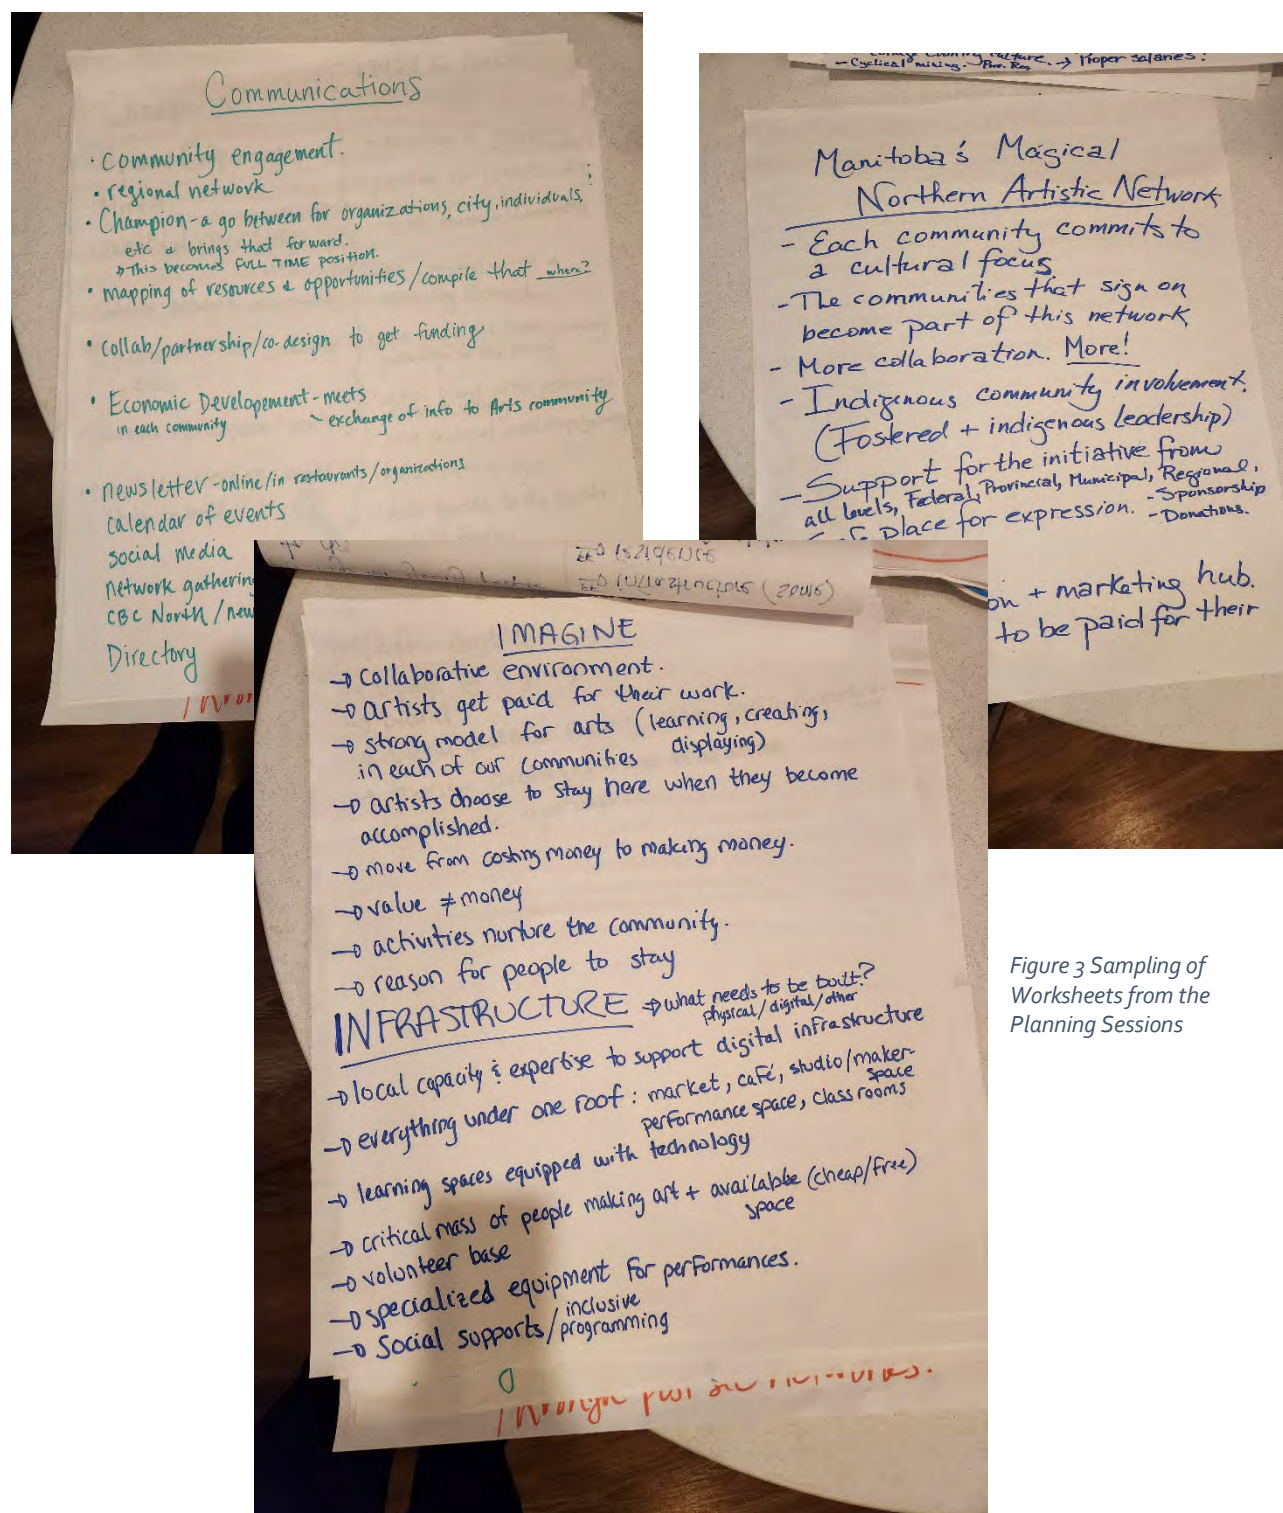 Communications
• community engagement.
• regional network
• Champion - a go between for organizations, city, individuals,
etc & brings that forward.
→ This becomes FULL TIME position.
• mapping of resources & opportunities / compile that where?
• collab/partnership/co-design to get funding
• Economic Developement - meets
in each community
- exchange of info to Arts community
• newsletter - online/in restaurants/organizations
calendar of events
social media
network gathering
CBC North / new
Directory
culture. → Proper salaries!
- Cyclical mixing.
Manitoba's Magical
Northern Artistic Network
- Each community commits to
a cultural focus
- The communities that sign on
become part of this network
- More collaboration. More!
- Indigenous community involvement.
(Fostered + indigenous leadership)
- Support for the initiative from
all levels, Federal, Provincial, Municipal, Regional,
- Sponsorship
- Donations.
place for expression.
on + marketing hub.
to be paid for their
IMAGINE
→ collaborative environment.
→ artists get paid for their work.
→ strong model for arts (learning, creating,
displaying)
in each of our communities
→ artists choose to stay here when they become
accomplished.
→ move from costing money to making money.
→ value ≠ money
→ activities nurture the community.
→ reason for people to stay
INFRASTRUCTURE → what needs to be built?
physical/digital/other
→ local capacity & expertise to support digital infrastructure
→ everything under one roof: market, café, studio/maker-
space
performance space, classrooms
→ learning spaces equipped with technology
→ critical mass of people making art + availabbe (cheap/free)
space
→ volunteer base
→ specialized equipment for performances.
→ Social supports/inclusive
programming
Figure 3 Sampling of
Worksheets from the
Planning Sessions